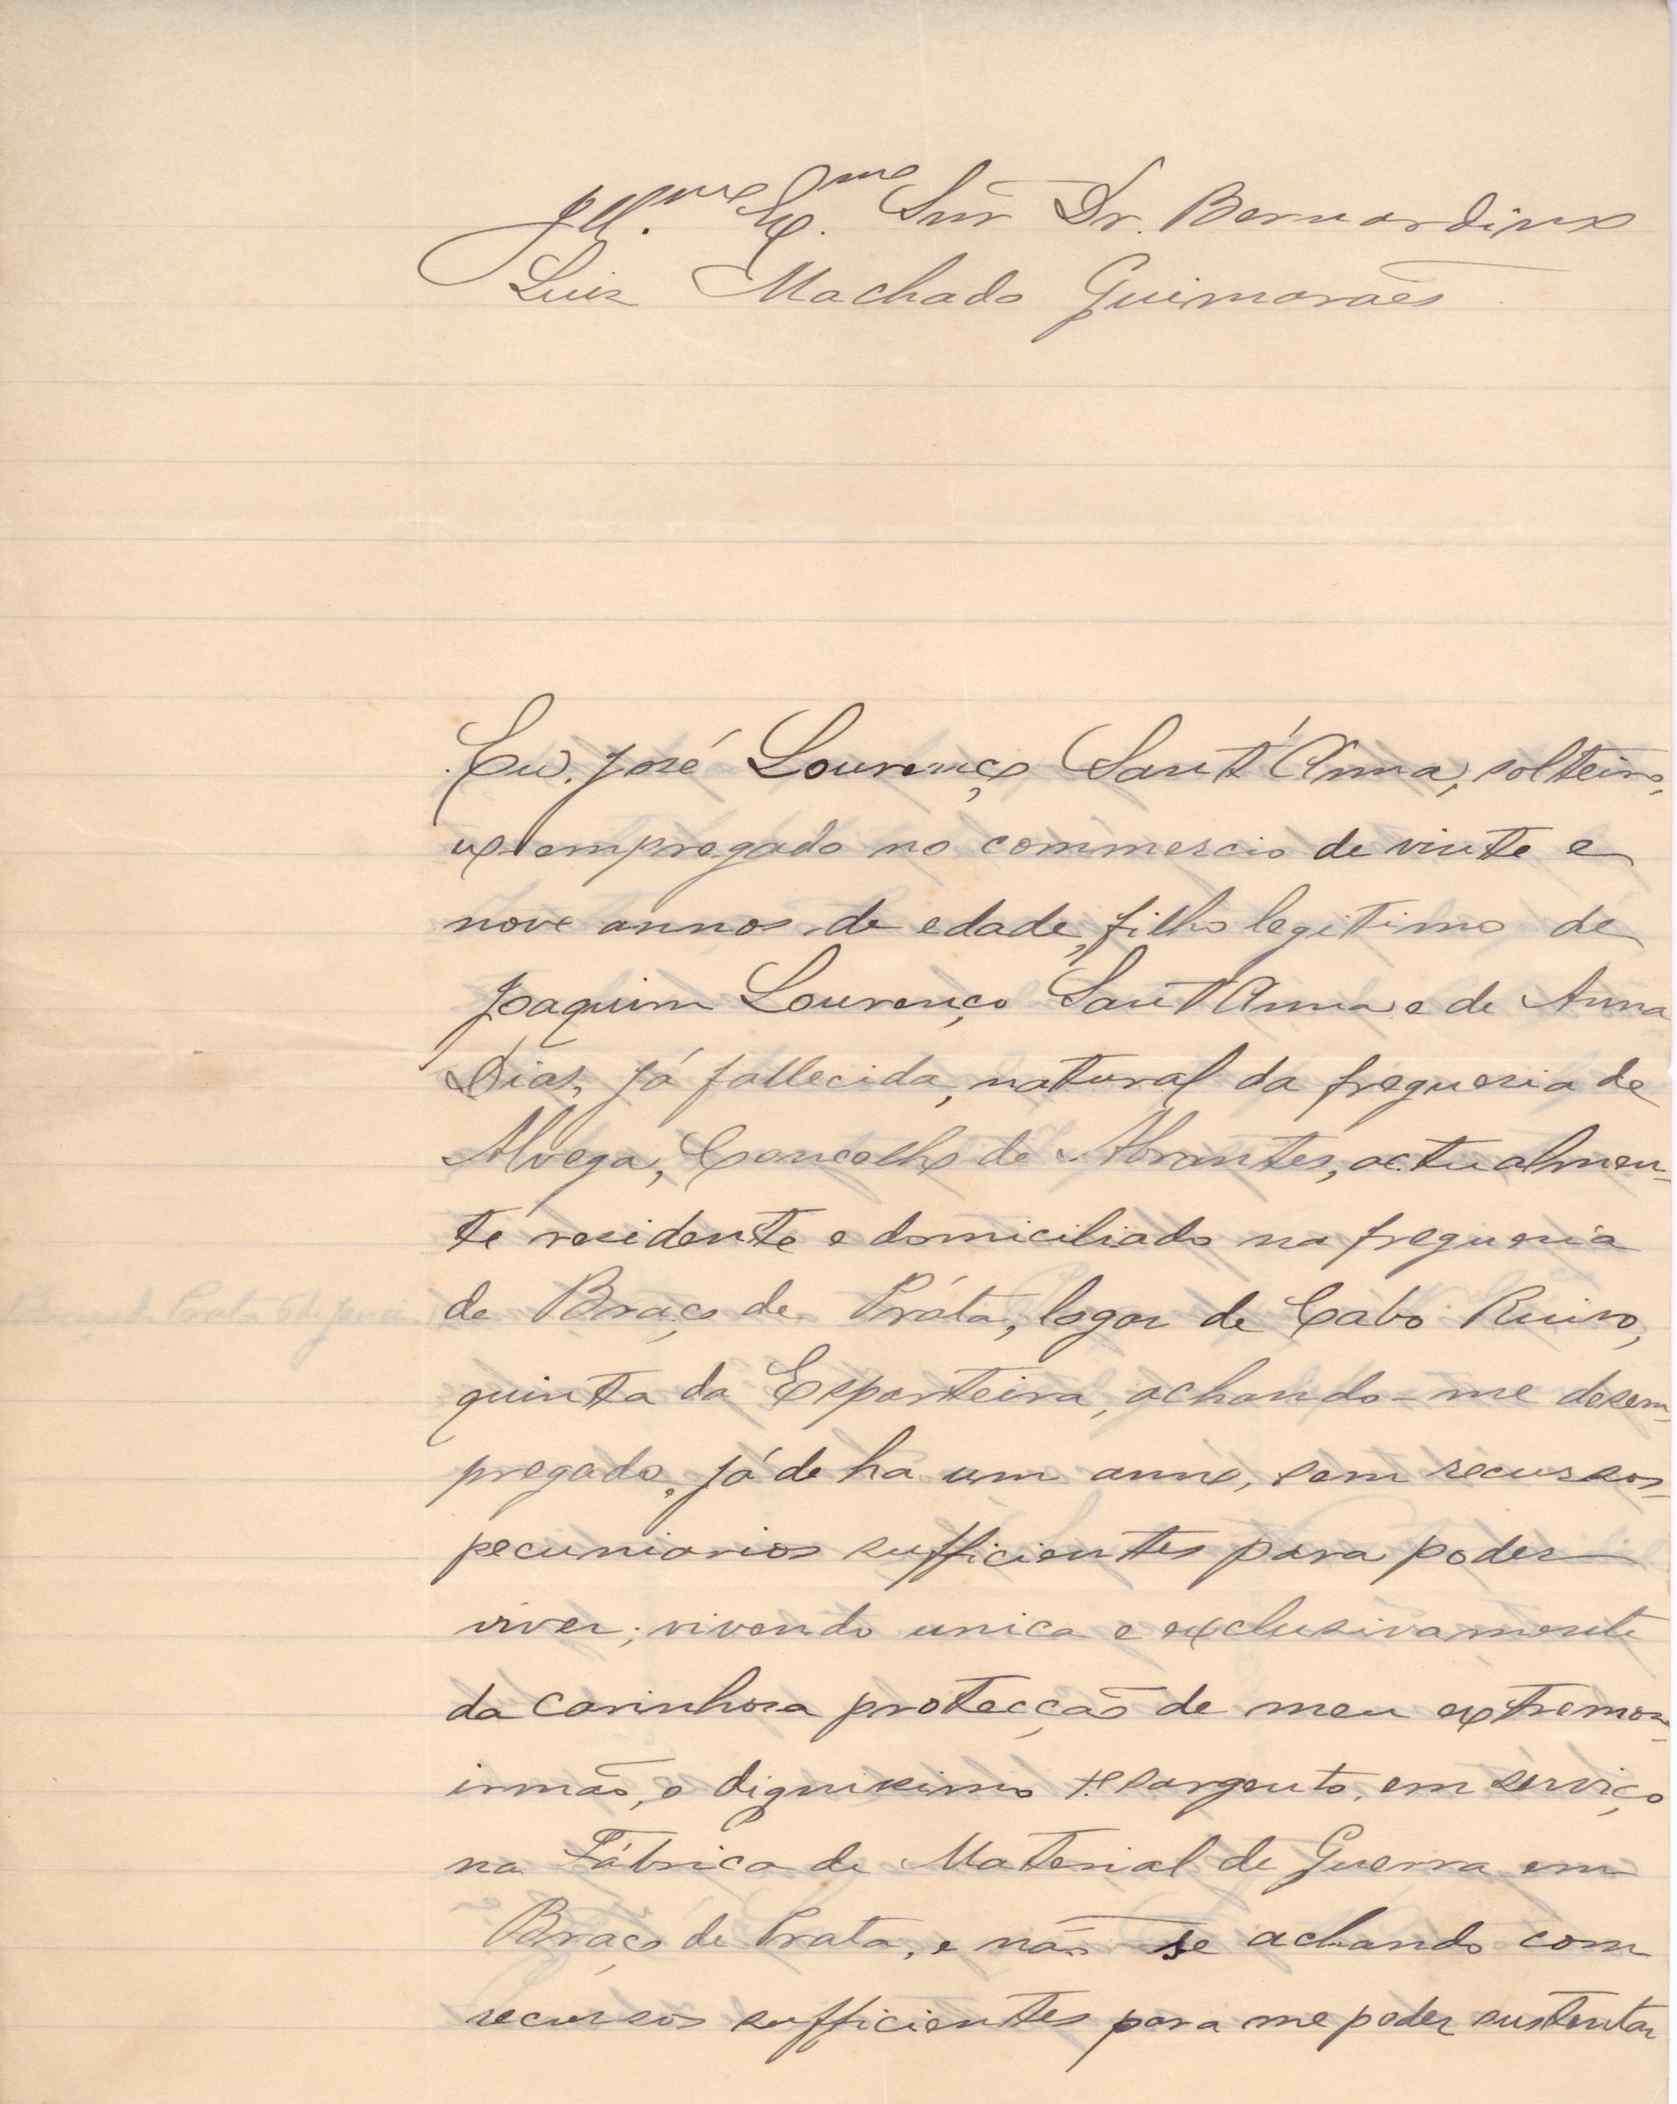 Ill.mo Ex.mo Snr Dr. Bernardino
Luiz Machado Guimarães
Eu, José Lourenço Sant'Anna, solteiro,
ex-empregado no commercio de vinte e
nove annos de edade, filho legitimo de
Joaquim Lourenço Sant'Anna e de Anna
Dias, já fallecida, natural da freguesia de
Alvega, Concelho de Abrantes, actualmen-
te residente e domiciliado na freguesia
de Braço de Práta, logar de Cabo Ruivo,
quinta da Esparteira, achando-me desem-
pregado, já de ha um anno, sem recursos
pecuniarios sufficientes para poder
viver; vivendo unica e exclusivamente
da carinhosa protecção de meu extremoso
irmão, o dignissimo 1º sargento, em serviço
na Fábrica de Material de Guerra em
Braço de Prata, e não se achando com
recursos sufficientes para me poder sustentar